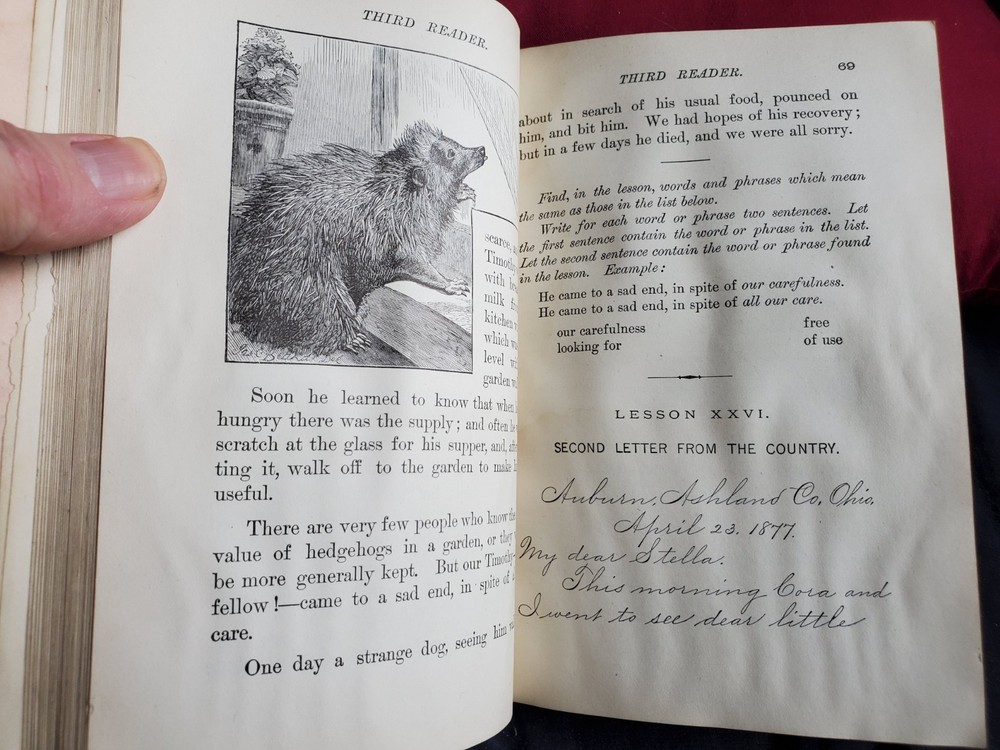 THIRD READER.
scarce,
Timothy
with
milk
kitchen
which
level
garden
Soon he learned to know that when
hungry there was the supply; and often he
scratch at the glass for his supper, and,
ting it, walk off to the garden to make
useful.
There are very few people who know the
value of hedgehogs in a garden, or they
be more generally kept. But our Timothy—
fellow!—came to a sad end, in spite of
care.
One day a strange dog, seeing him
THIRD READER. 69
about in search of his usual food, pounced on
him, and bit him. We had hopes of his recovery;
but in a few days he died, and we were all sorry.
Find, in the lesson, words and phrases which mean
the same as those in the list below.
Write for each word or phrase two sentences. Let
the first sentence contain the word or phrase in the list.
Let the second sentence contain the word or phrase found
in the lesson. Example:
He came to a sad end, in spite of our carefulness.
He came to a sad end, in spite of all our care.
our carefulness free
looking for of use
LESSON XXVI.
SECOND LETTER FROM THE COUNTRY.
Auburn, Ashland Co, Ohio,
April 23, 1877.
My dear Stella.
This morning Cora and
I went to see dear little